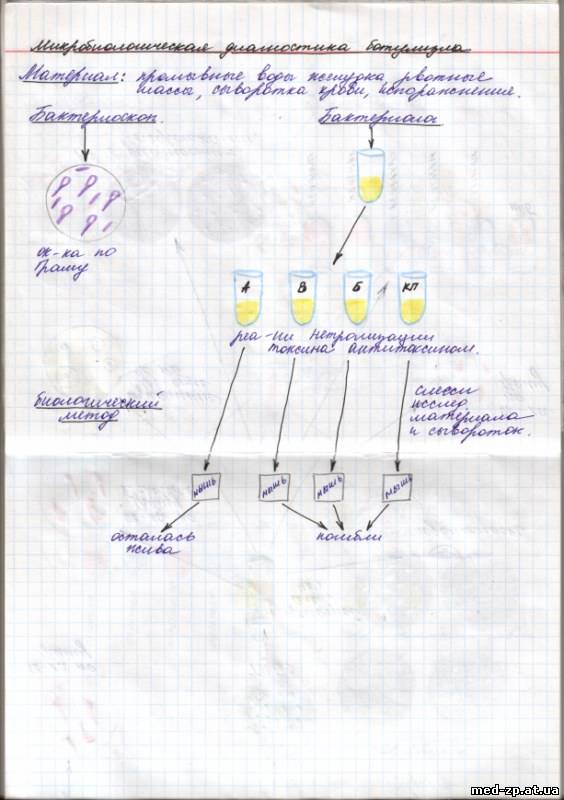 Микробиологическая диагностика ботулизма
Материал: промывные воды желудка рвотные
массы, сыворотка крови, испоражнения.
Бактериоскоп.
Бактериала
ок-ка по
Граму
А В Б КП
реа-ии нетрализации
токсина антитоксином.
биологический
метод
смеси
исслед.
материала
и сывороток.
мышь мышь мышь мышь
осталась
жива
погибли
med-zp.at.ua